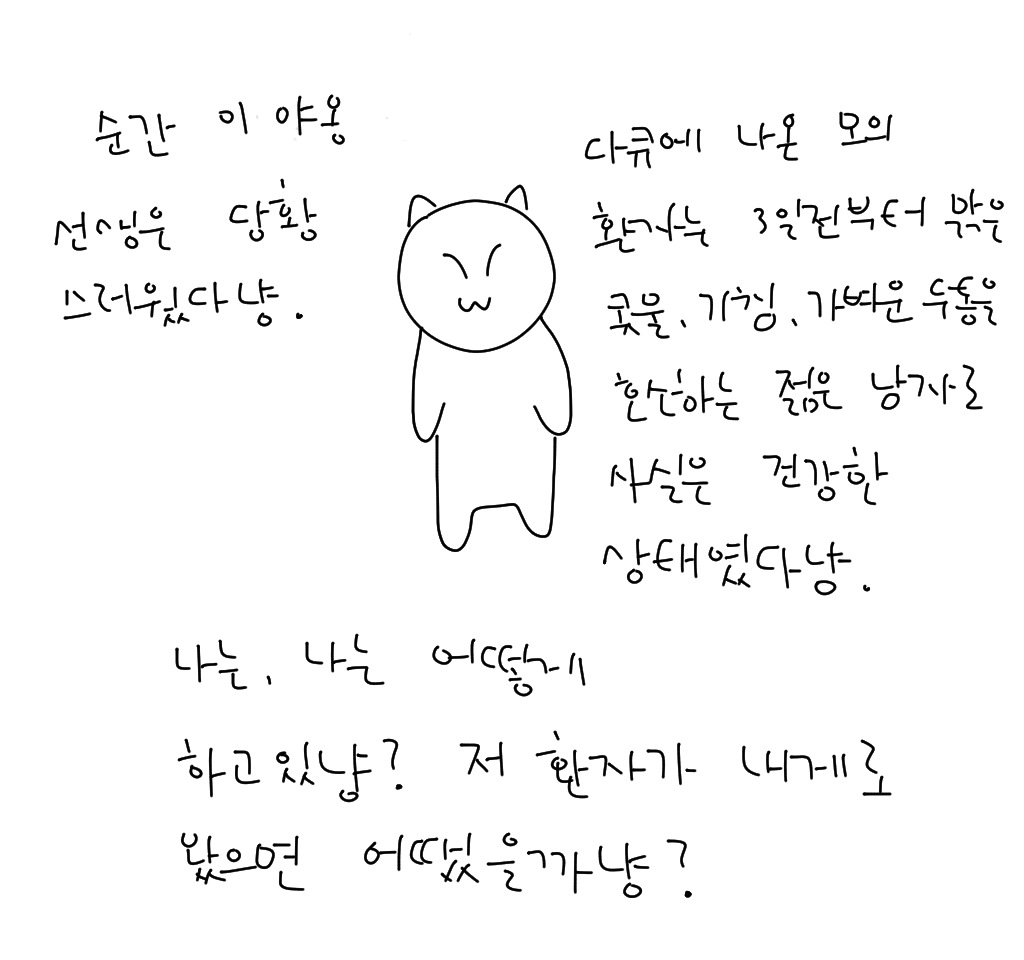 순간 이 야옹
선생은 당황
스러웠다냥.
다큐에 나온 모의
환자는 3일전부터 맑은
콧물, 기침, 가벼운 두통을
호소하는 젊은 남자로
사실은 건강한
상태였다냥.
나는, 나는 어떻게
하고있냥? 저 환자가 내게로
왔으면 어땠을까냥?